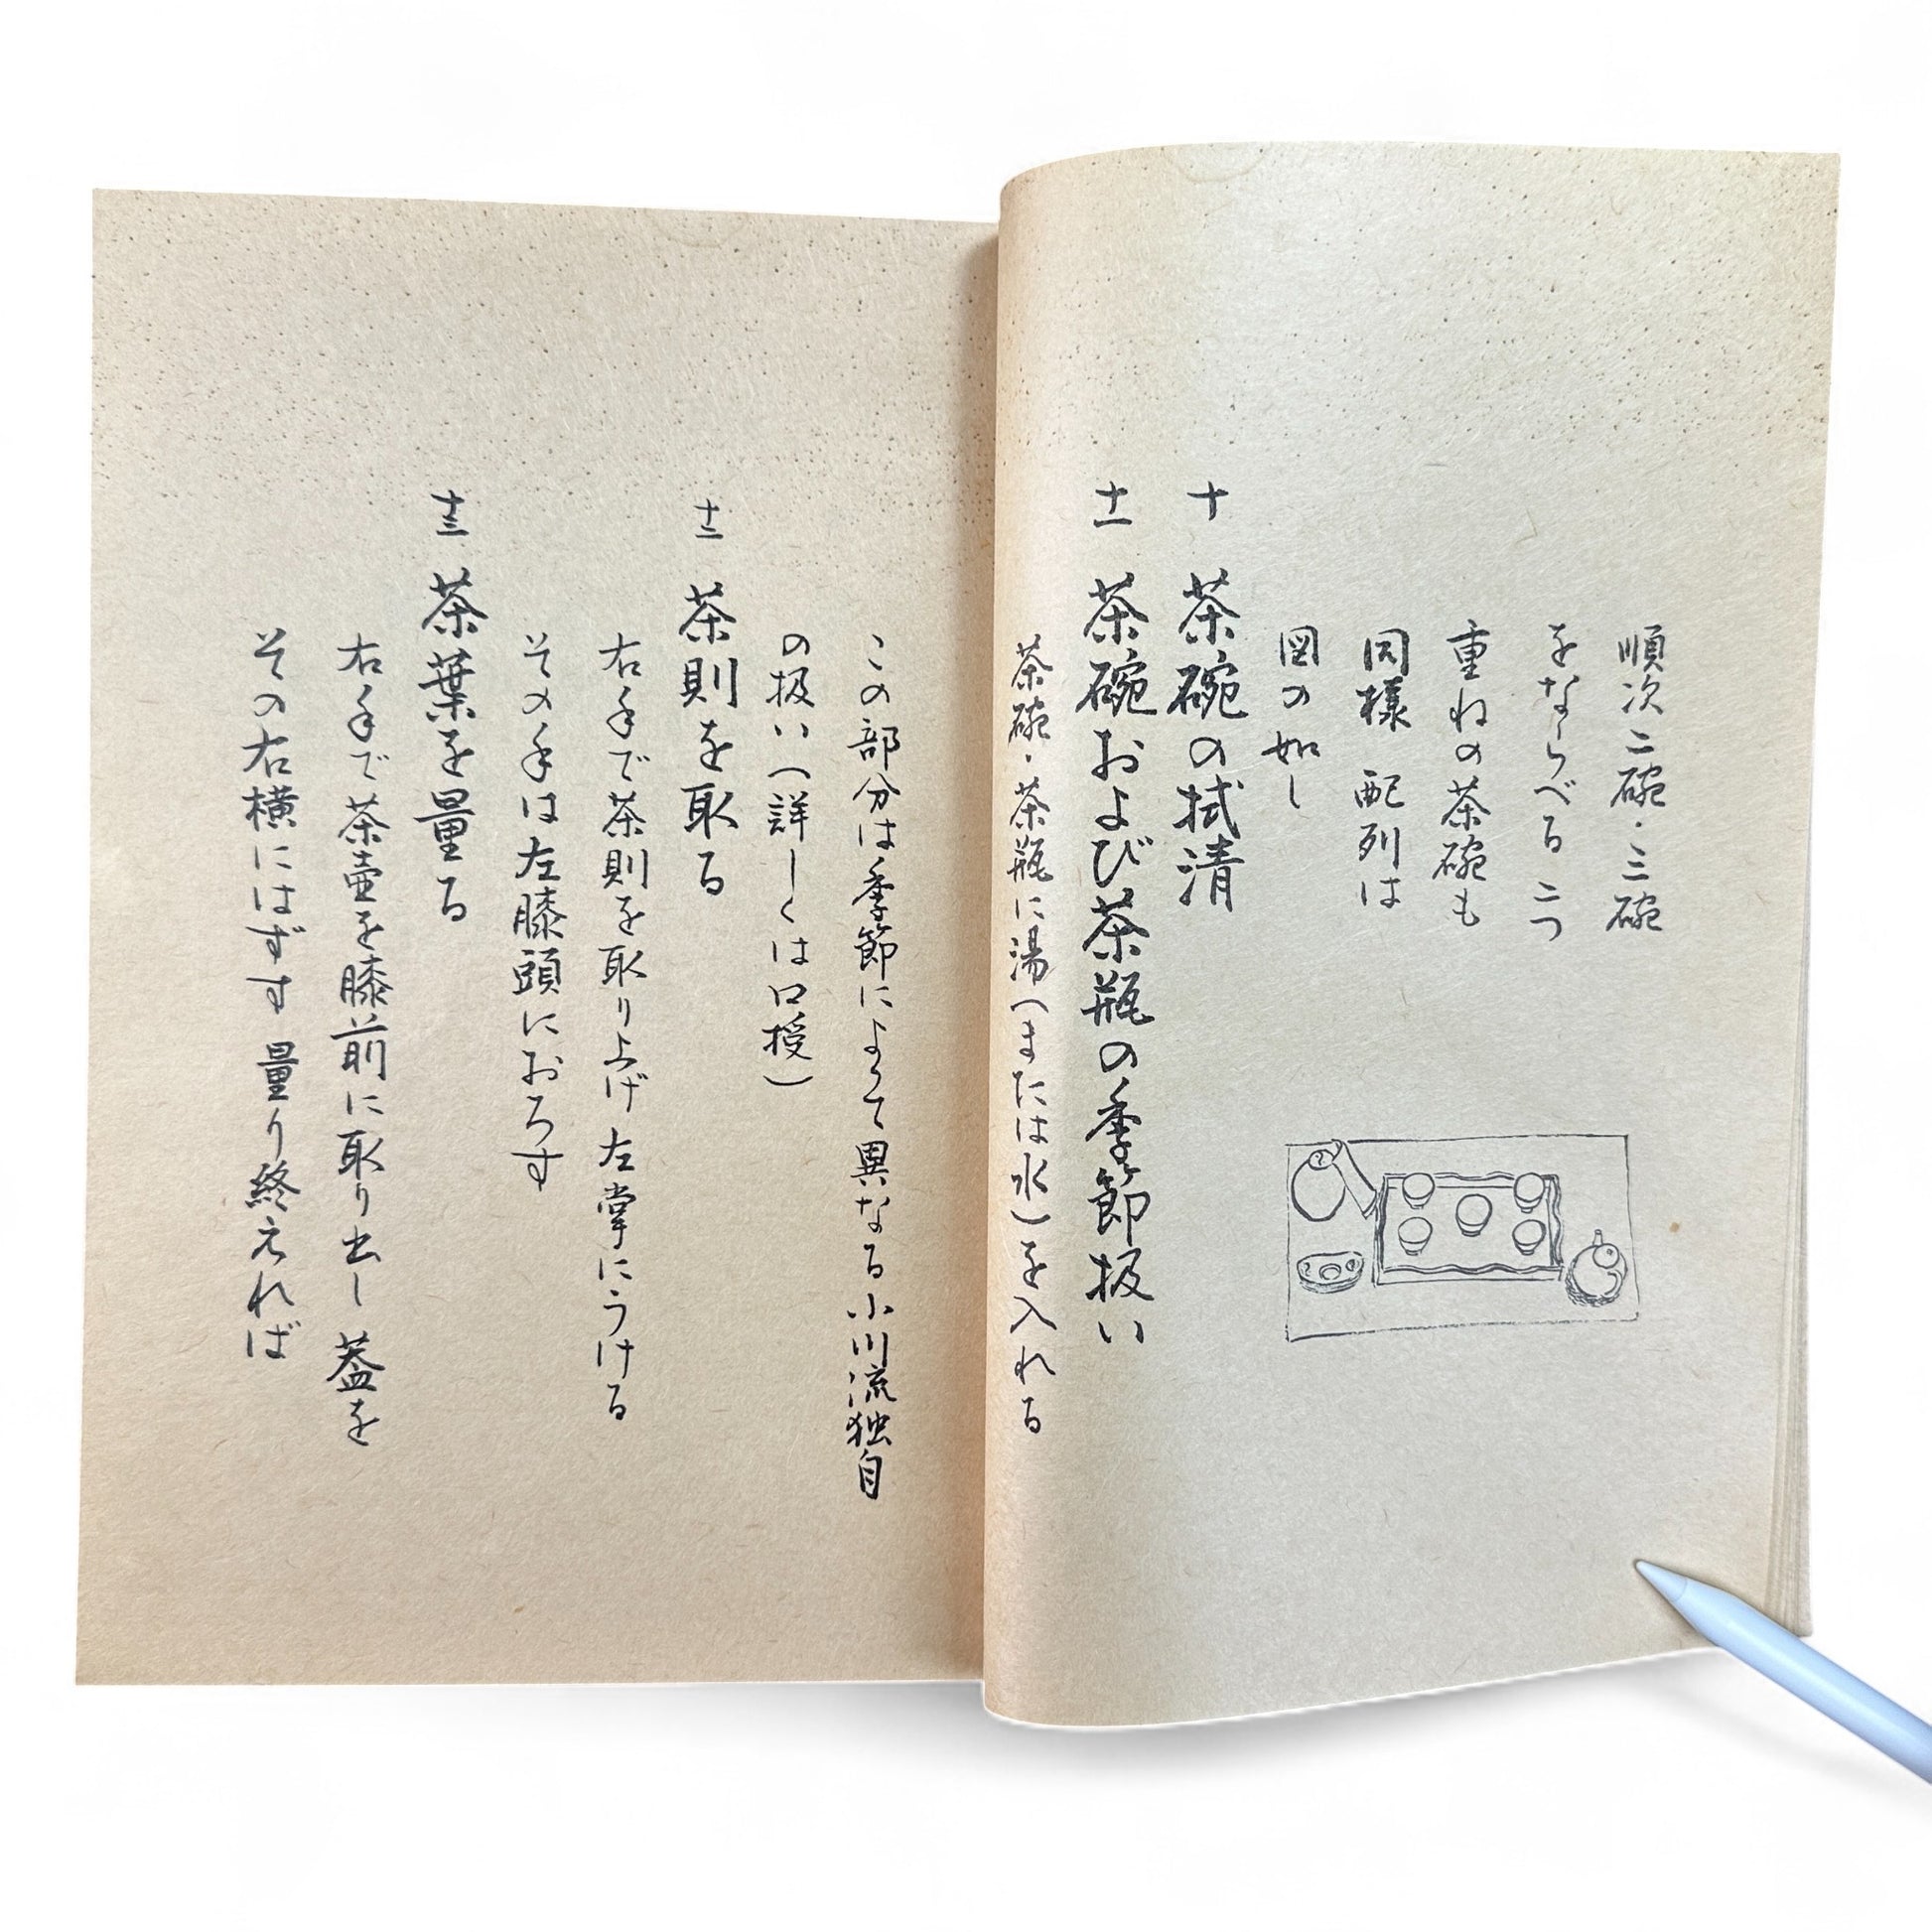 順次二碗・三碗
をならべる 二つ
重ねの茶碗も
同様 配列は
図の如し
十 茶碗の拭清
十一 茶碗および茶瓶の季節扱い
茶碗・茶瓶に湯(または水)を入れる
この部分は季節によって異なる小川流独自
の扱い(詳しくは口授)
十二 茶則を取る
右手で茶則を取り上げ 左掌にうける
その手は左膝頭におろす
十三 茶葉を量る
右手で茶壷を膝前に取り出し 蓋を
その右横にはずす 量り終えれば